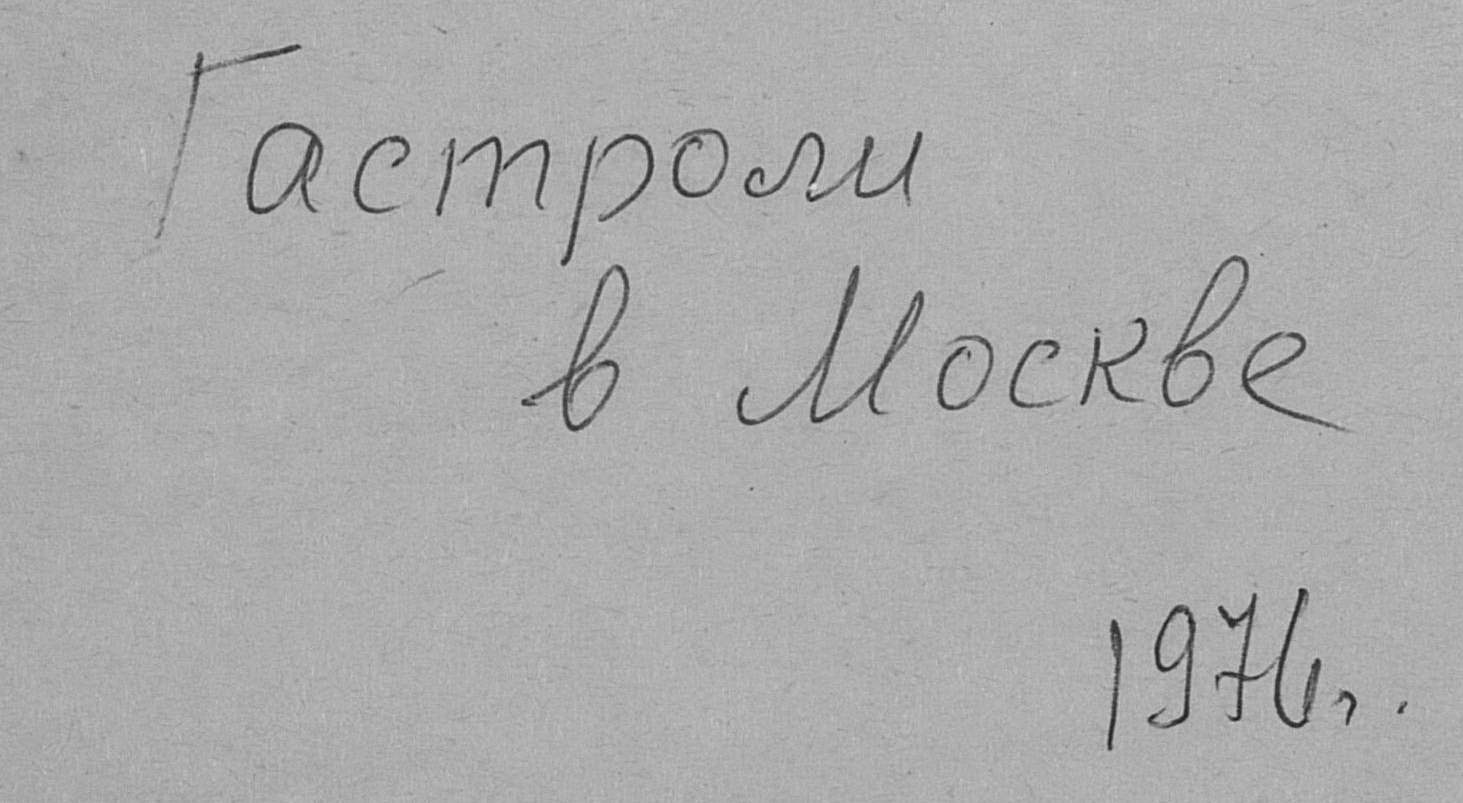 Гастроли
в Москве
1976г.